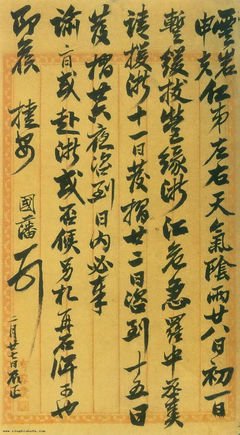 雲岩仁弟左右天氣陰雨廿八日初一日
申夫
暫緩拔營緣浙江危急羅中丞奏
請援浙十一日發摺廿二日諮到十五日
發摺廿六夜諮到日內必奉
諭旨或赴浙或否候另札再行可也
即候 桂安 國藩頓
二月廿七日辰正